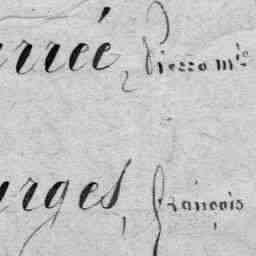 urrée, Pierre M.ie
urges, François